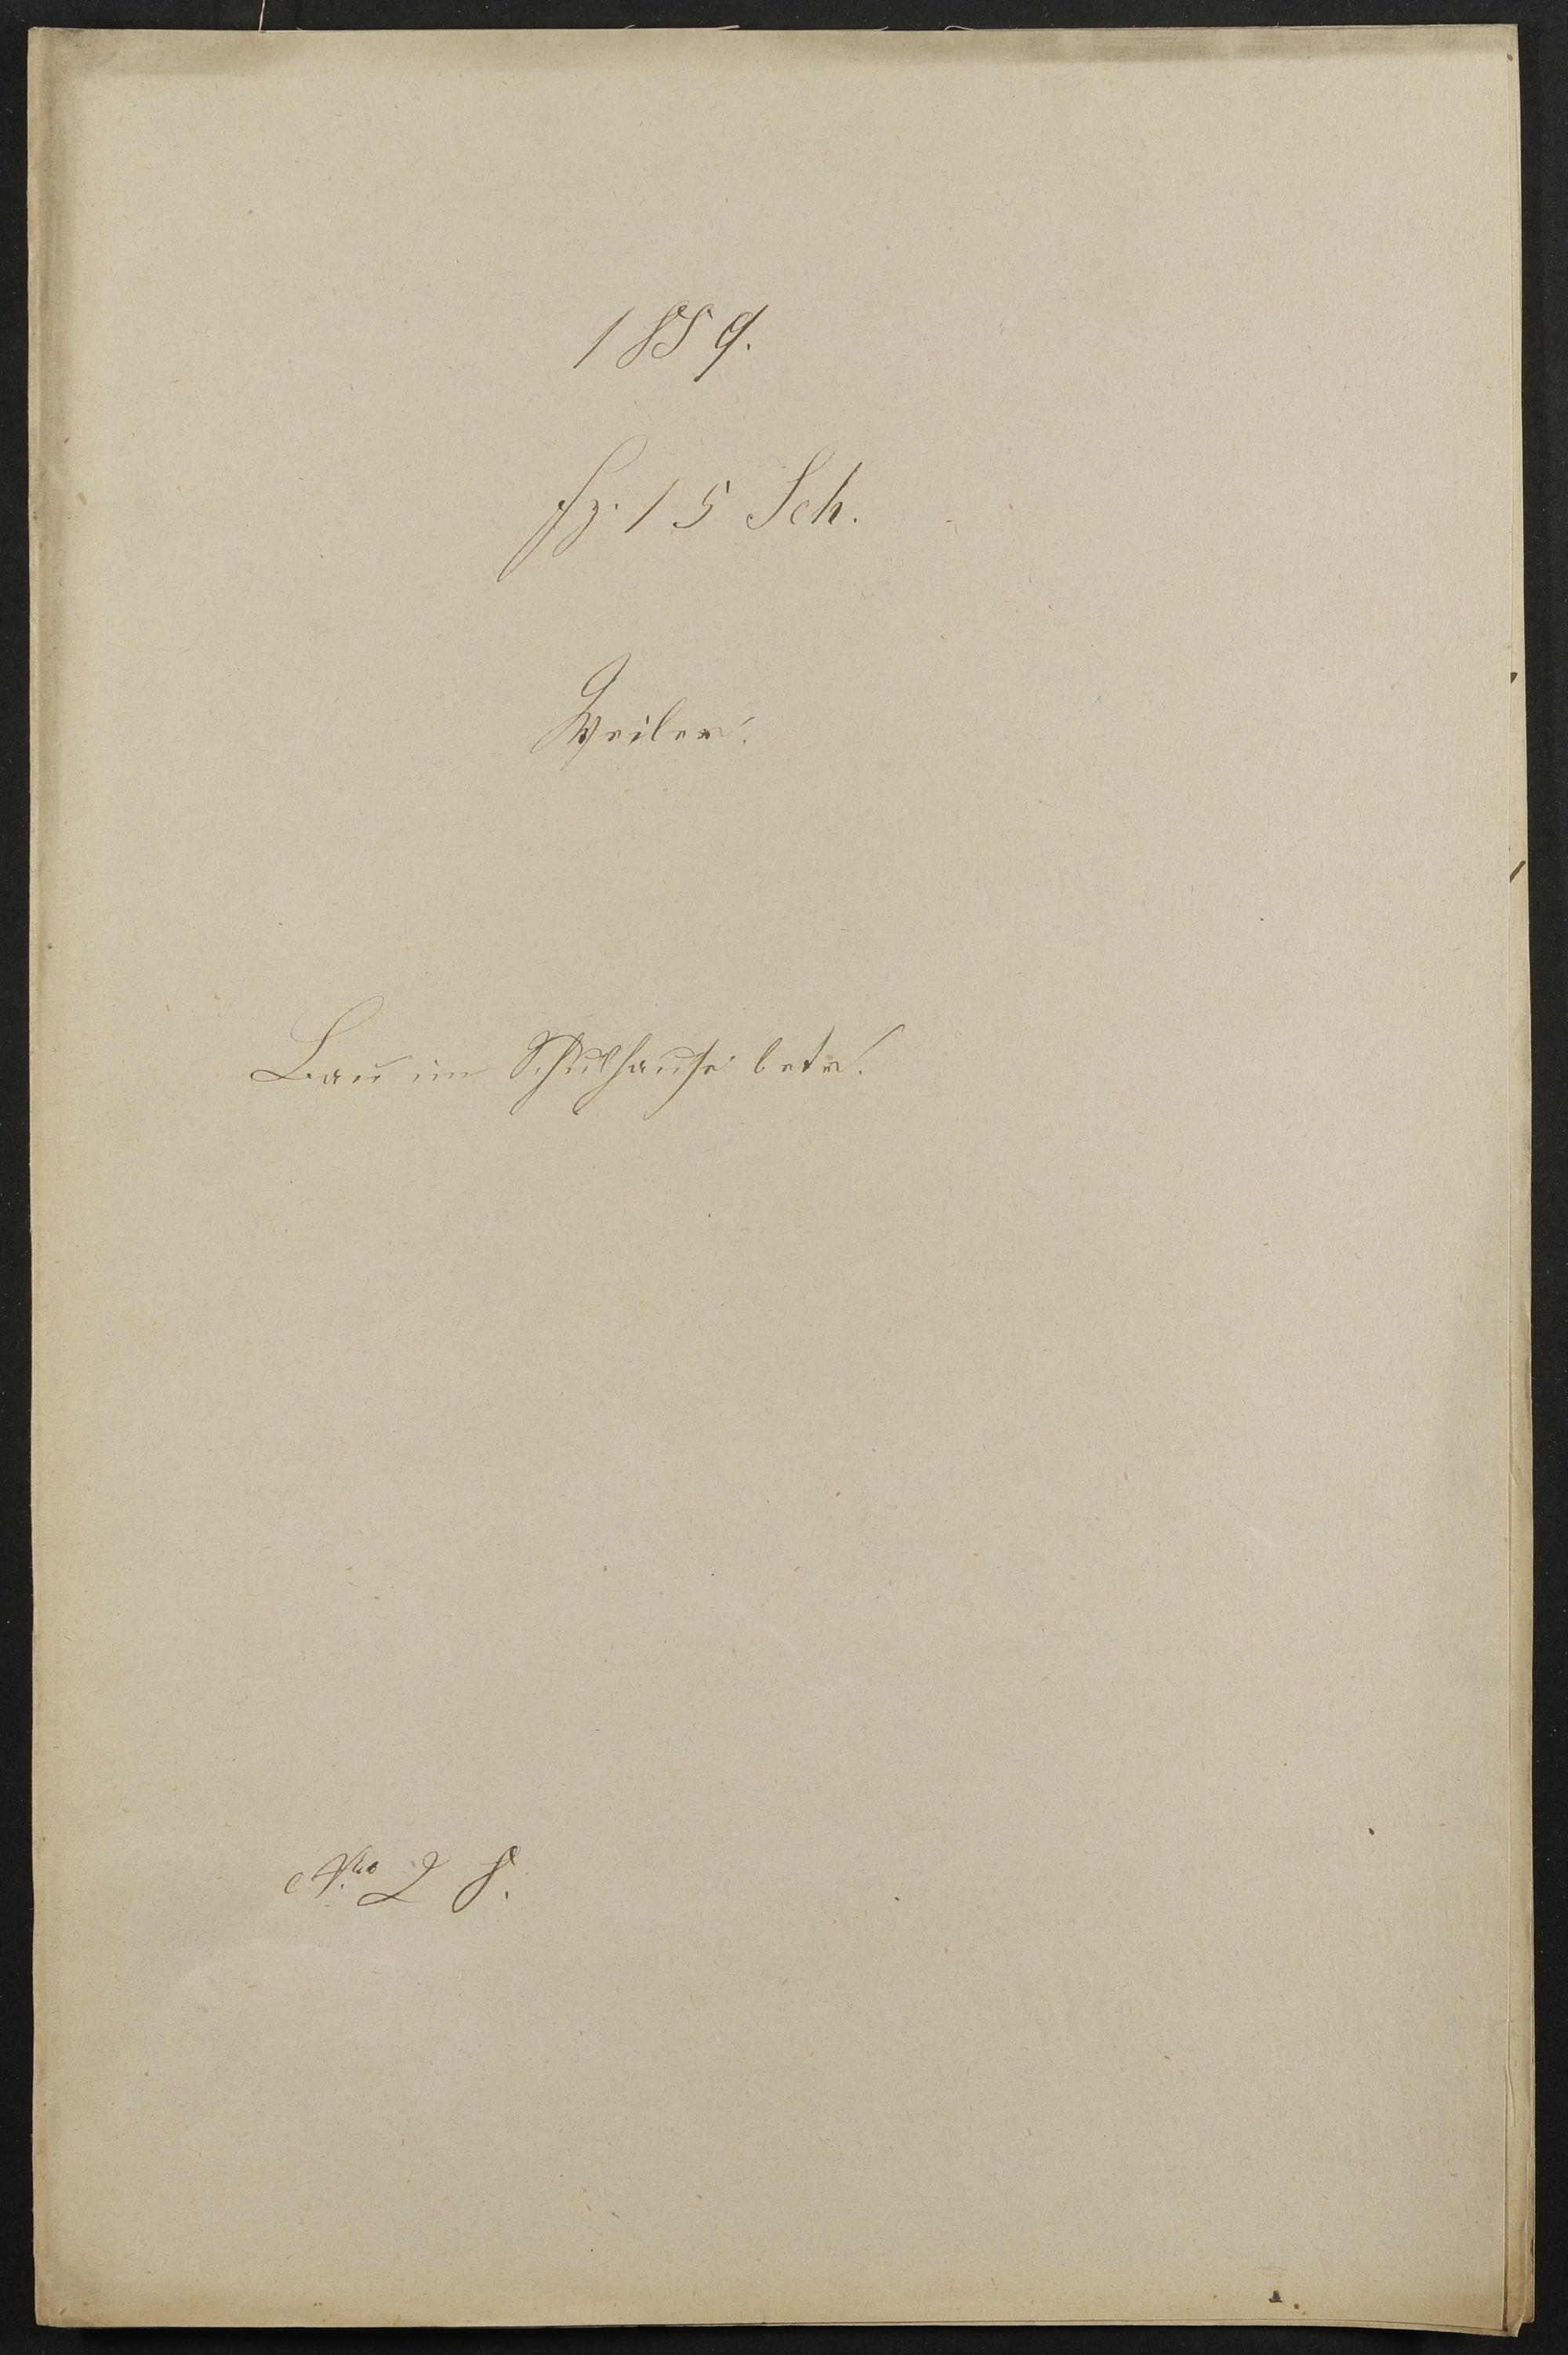 1859.
Fz. 15 Sch.
Weiler.
Bau im Schulhause betr.
No 28.